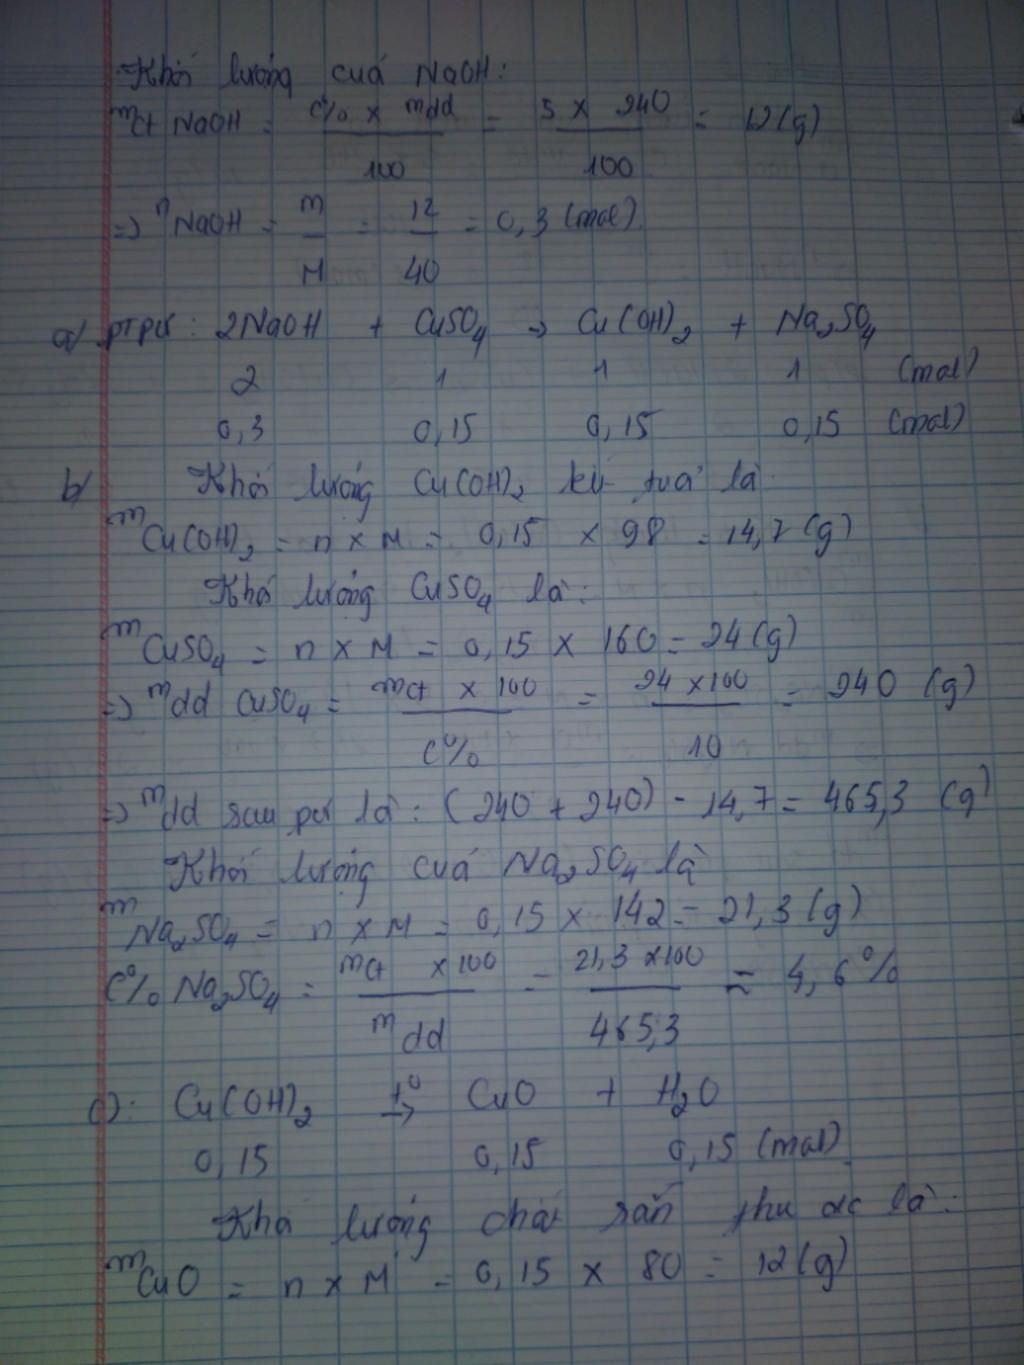 Khối lượng của NaOH:
mct NaOH = C% x mdd / 100 = 5 x 240 / 100 = 12 (g)
=> nNaOH = m / M = 12 / 40 = 0,3 (mol)
a) ptpư: 2NaOH + CuSO4 → Cu(OH)2 + Na2SO4
2 1 1 1 (mol)
0,3 0,15 0,15 0,15 (mol)
b) Khối lượng Cu(OH)2 kết tủa là
mCu(OH)2 = n x M = 0,15 x 98 = 14,7 (g)
Khối lượng CuSO4 là:
mCuSO4 = n x M = 0,15 x 160 = 24 (g)
=> mdd CuSO4 = mct x 100 / C% = 24 x 100 / 10 = 240 (g)
=> mdd sau pư là: (240 + 240) - 14,7 = 465,3 (g)
Khối lượng của Na2SO4 là
mNa2SO4 = n x M = 0,15 x 142 = 21,3 (g)
C% Na2SO4 = mct x 100 / mdd = 21,3 x 100 / 465,3 ≈ 4,6%
c): Cu(OH)2 t0→ CuO + H2O
0,15 0,15 0,15 (mol)
Khối lượng chất rắn thu đc là:
mCuO = n x M = 0,15 x 80 = 12 (g)